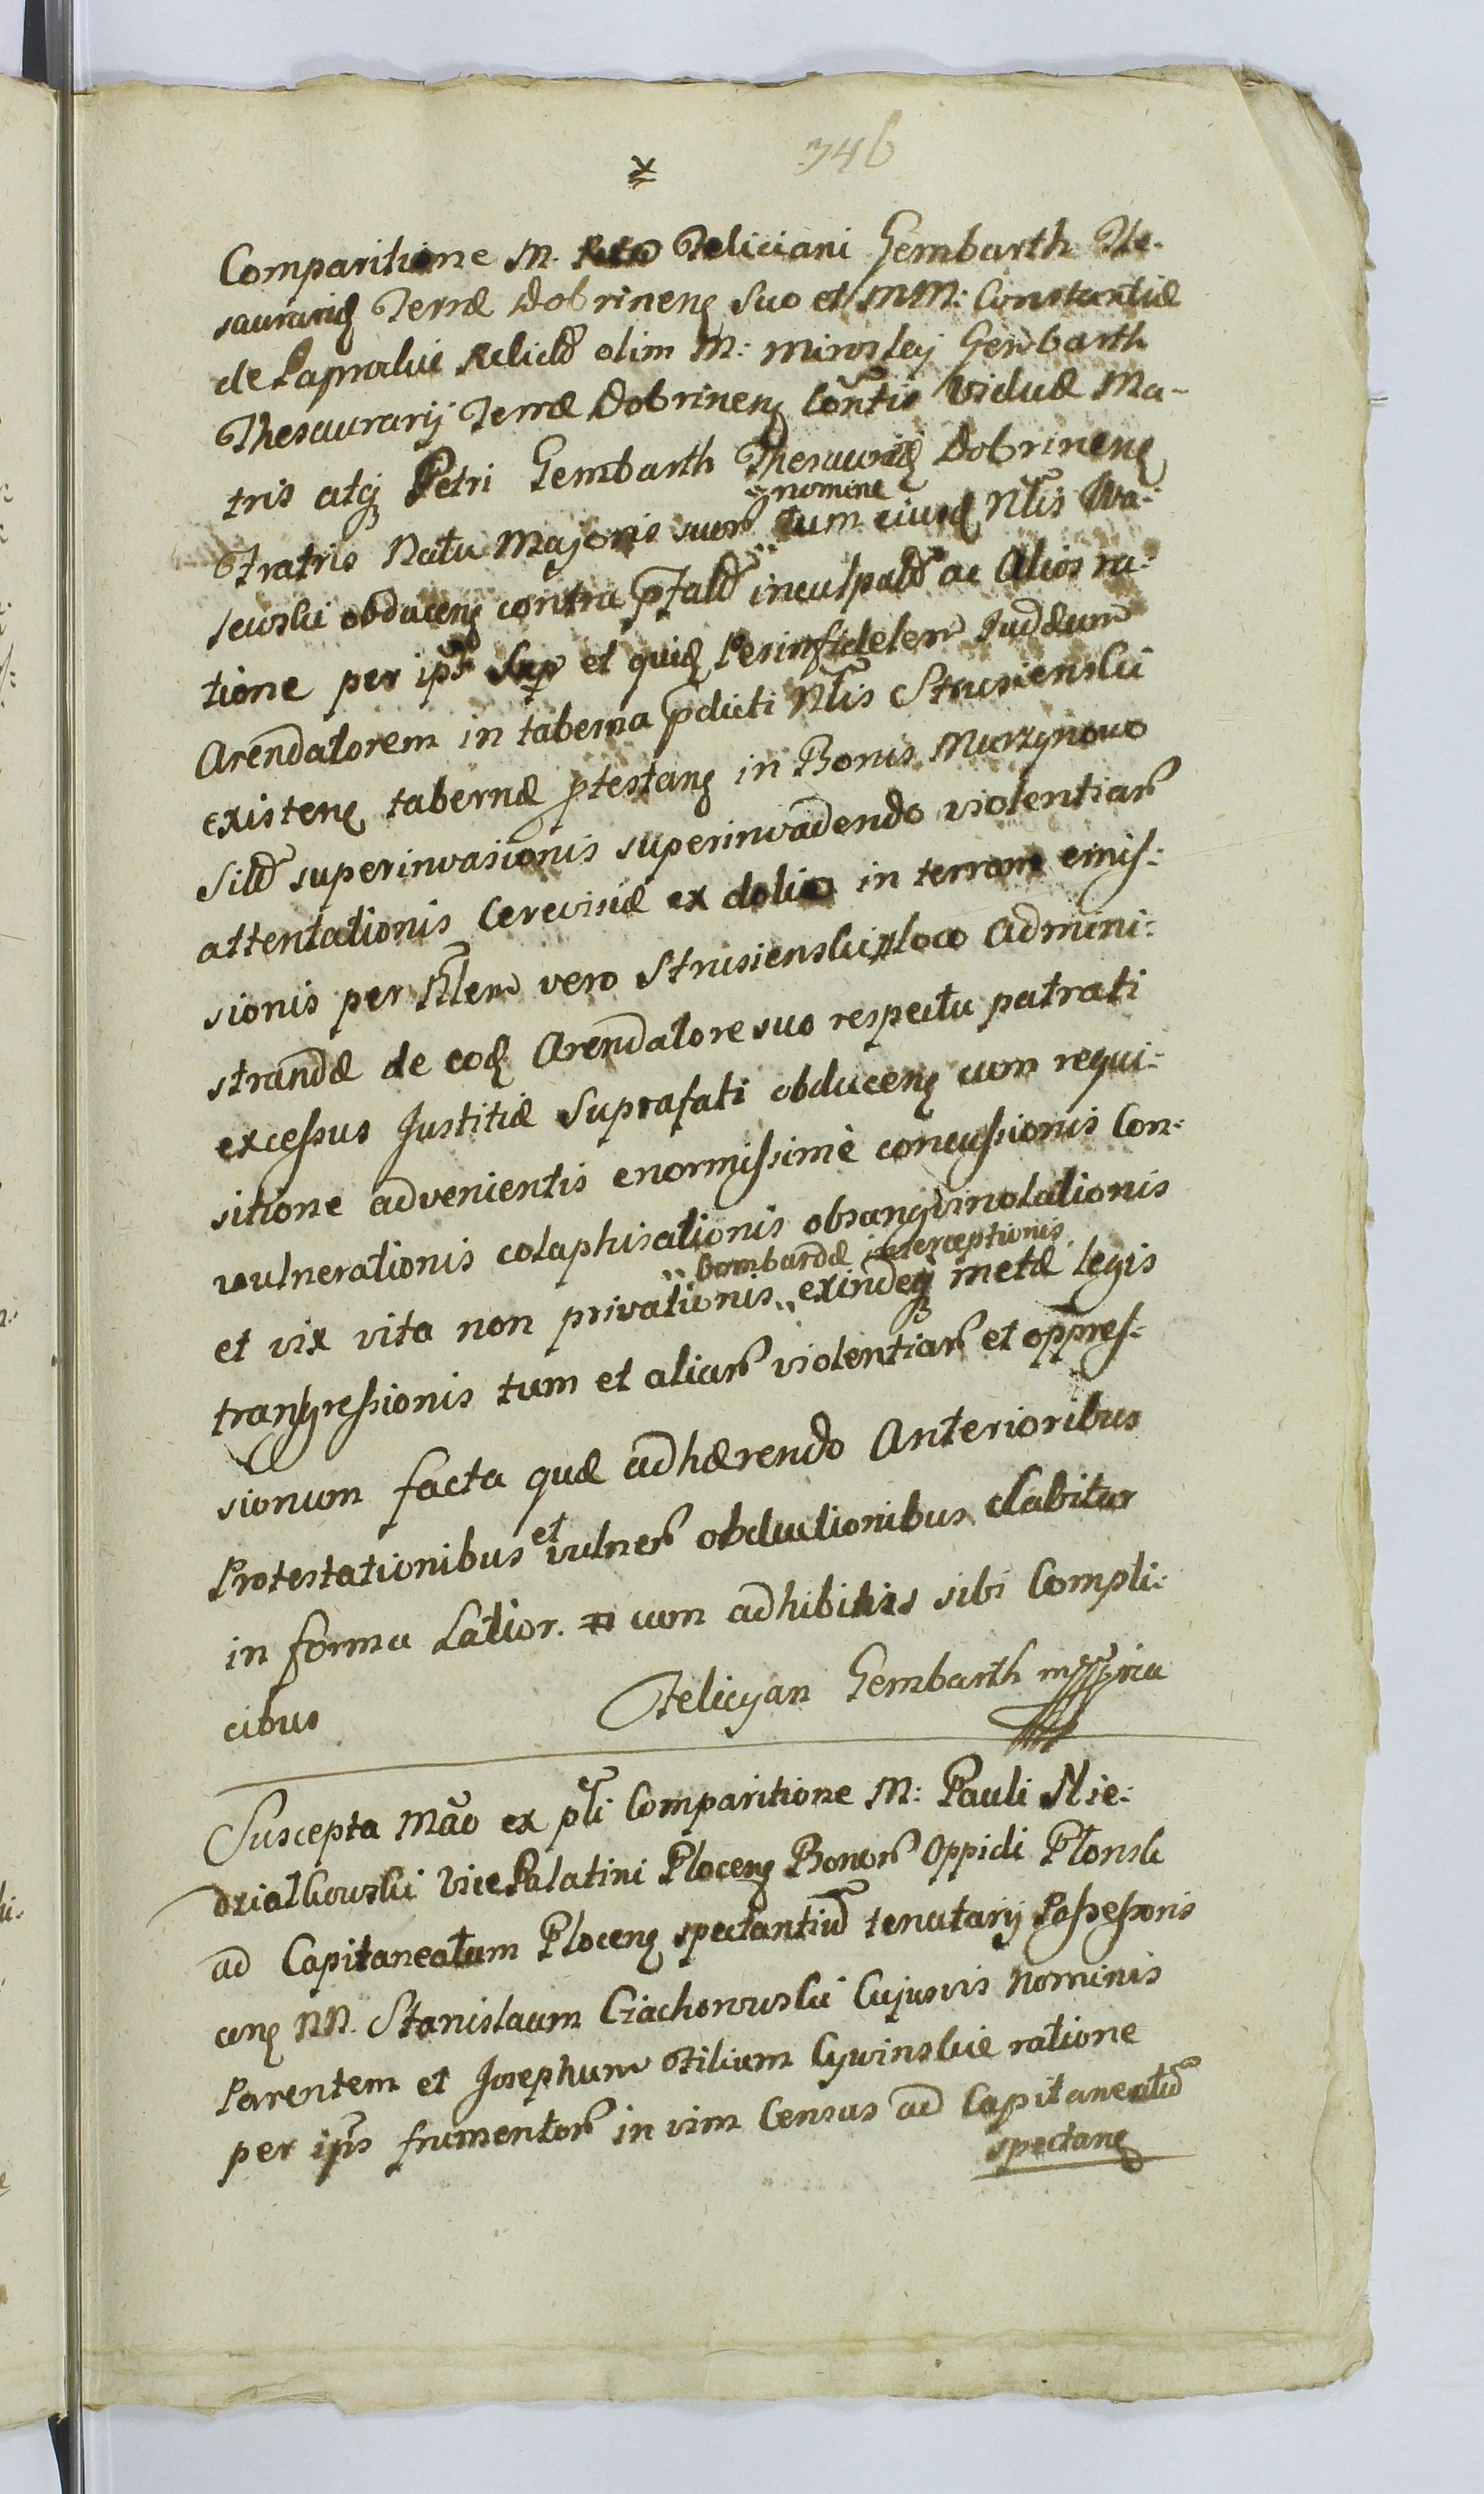 746
Comparitione M. Feliciani Gembarth The-
saurarij Terræ Dobrinen suo et MM: Constantiæ
de Paprockie Relictæ olim M: Miroslaj Gembarth
Thesaurarij Terræ Dobrinen Contis Viduæ Ma-
tris atq Petri Gembarth Thesaurid Dobrinen
Fratris Natu Majoris suor̃ tum ejusd Nlis Wa-
nomine
sewski obducen contra pfatũ inculpatũ ac Alios ra-
tione per ipũ Sup et quid Perinfidelem Judæum
Arendatorem in taberna pdicti Nlis Strusienski
existen tabernæ ptestan in Bonis Murzynowo
Sitũ superinvasionis superinvadendo violentiar̃
attentationis Cerevisiæ ex dolio in terram emis-
sionis per Nlem vero Strusienski loco Admini-
strandæ de eod Arendatore suo respectu patrati
excessus Justitiæ Suprafati obducen cum requi-
sitione advenientis enormissimè concussionis Con-
vulnerationis colaphisationis obsangvinolationis
et vix vita non privationis exindeq metæ legis
bombardæ interceptionis
transgressionis tum et aliar̃ violentiar̃ et oppres-
sionum facta quæ adhærendo Anterioribus
Protestationibus et vulner̃ obductionibus dabitur
in forma Latior. cum adhibitis sibi Compli-
cibus
Felicyan Gembarth mppria
Suscepta Mão ex pti Comparitione M: Pauli Nie-
dzialkowski Vice Palatini Plocen Bonor̃ Oppidi Plonsk
ad Capitaneatum Plocen spectantiũ tenutarij Possessoris
cen NN. Stanislaum Ciachowski Cujusvis Nominis
Parentem et Josephum Filium Cywinskie ratione
per ipõs frumentor̃ in vim Census ad Capitaneatũ
spectan